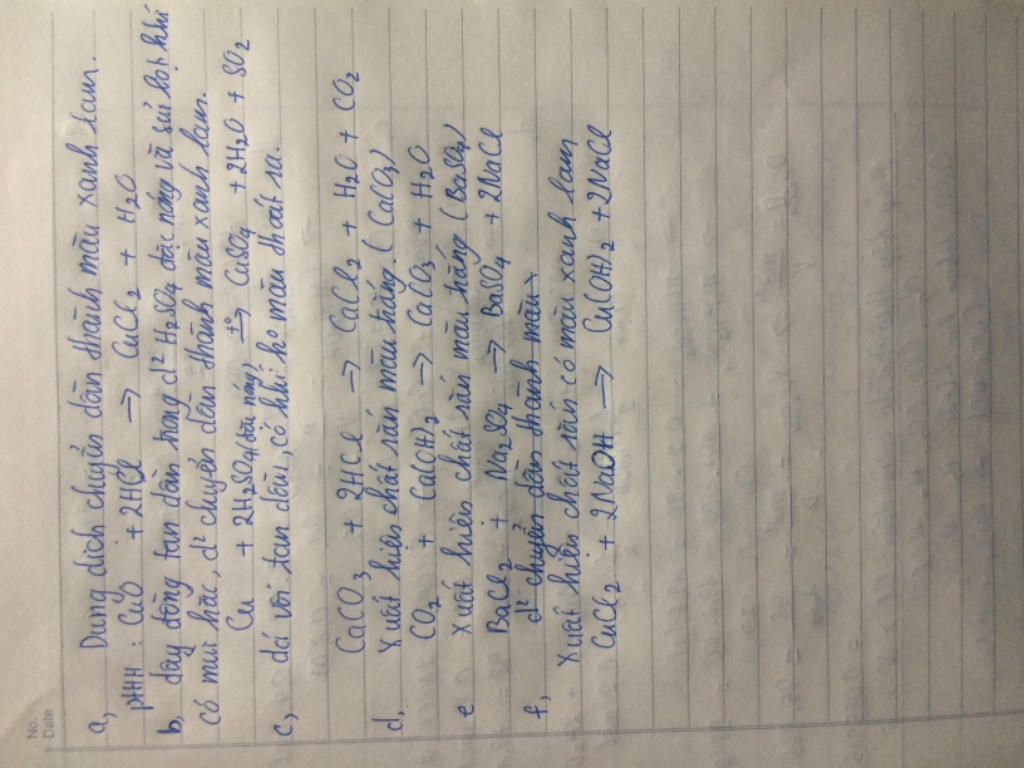 No.
Date
a, Dung dịch chuyển dần thành màu xanh lam.
PTHH : CuO + 2HCl → CuCl2 + H2O
b, dây đồng tan dần trong d² H2SO4 đặc nóng và sủi bọt khí
có mùi hắc, d² chuyển dần thành màu xanh lam.
Cu + 2H2SO4(đặc nóng) t°→ CuSO4 + 2H2O + SO2
c, đá vôi tan dần, có khí ko màu thoát ra.
CaCO3 + 2HCl → CaCl2 + H2O + CO2
d, Xuất hiện chất rắn màu trắng. (CaCO3)
CO2 + Ca(OH)2 → CaCO3 + H2O
e xuất hiện chất rắn màu trắng (BaSO4)
BaCl2 + Na2SO4 → BaSO4 + 2NaCl
f, d² chuyển dần thành màu
Xuất hiện chất rắn có màu xanh lam
CuCl2 + 2NaOH → Cu(OH)2 + 2NaCl